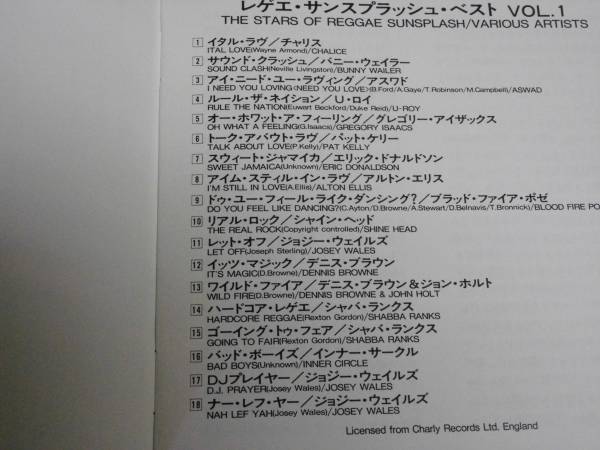 レゲエ・サンスプラッシュ・ベスト VOL.1
THE STARS OF REGGAE SUNSPLASH/VARIOUS ARTISTS
1 イタル・ラヴ／チャリス
ITAL LOVE(Wayne Armond)/CHALICE
2 サウンド・クラッシュ／バニー・ウェイラー
SOUND CLASH(Neville Livingston)/BUNNY WAILER
3 アイ・ニード・ユー・ラヴィング／アスワド
I NEED YOU LOVING<NEED YOU LOVE>(B.Ford/A.Gaye/T.Robinson/M.Campbell)/ASWAD
4 ルール・ザ・ネイション／U・ロイ
RULE THE NATION(Euwart Beckford/Duke Reid)/U-ROY
5 オー・ホワット・ア・フィーリング／グレゴリー・アイザックス
OH WHAT A FEELING(G.Isaacs)/GREGORY ISAACS
6 トーク・アバウト・ラヴ／パット・ケリー
TALK ABOUT LOVE(P.Kelly)/PAT KELLY
7 スウィート・ジャマイカ／エリック・ドナルドソン
SWEET JAMAICA(Unknown)/ERIC DONALDSON
8 アイム・スティル・イン・ラヴ／アルトン・エリス
I'M STILL IN LOVE(A.Ellis)/ALTON ELLIS
9 ドゥ・ユー・フィール・ライク・ダンシング？／ブラッド・ファイア・ポゼ
DO YOU FEEL LIKE DANCING?(C.Ayton/D.Browne/A.Stewart/D.Belnavis/T.Bronnick)/BLOOD FIRE PO
10 リアル・ロック／シャイン・ヘッド
THE REAL ROCK(Copyright controlled)/SHINE HEAD
11 レット・オフ／ジョジー・ウェイルズ
LET OFF(Joseph Sterling)/JOSEY WALES
12 イッツ・マジック／デニス・ブラウン
IT'S MAGIC(D.Browne)/DENNIS BROWNE
13 ワイルド・ファイア／デニス・ブラウン&ジョン・ホルト
WILD FIRE(D.Browne)/DENNIS BROWNE & JOHN HOLT
14 ハードコア・レゲエ／シャバ・ランクス
HARDCORE REGGAE(Rexton Gordon)/SHABBA RANKS
15 ゴーイング・トゥ・フェア／シャバ・ランクス
GOING TO FAIR(Rexton Gordon)/SHABBA RANKS
16 バッド・ボーイズ／インナー・サークル
BAD BOYS(Unknown)/INNER CIRCLE
17 DJプレイヤー／ジョジー・ウェイルズ
D.J. PRAYER(Josey Wales)/JOSEY WALES
18 ナー・レフ・ヤー／ジョジー・ウェイルズ
NAH LEF YAH(Josey Wales)/JOSEY WALES
Licensed from Charly Records Ltd. England